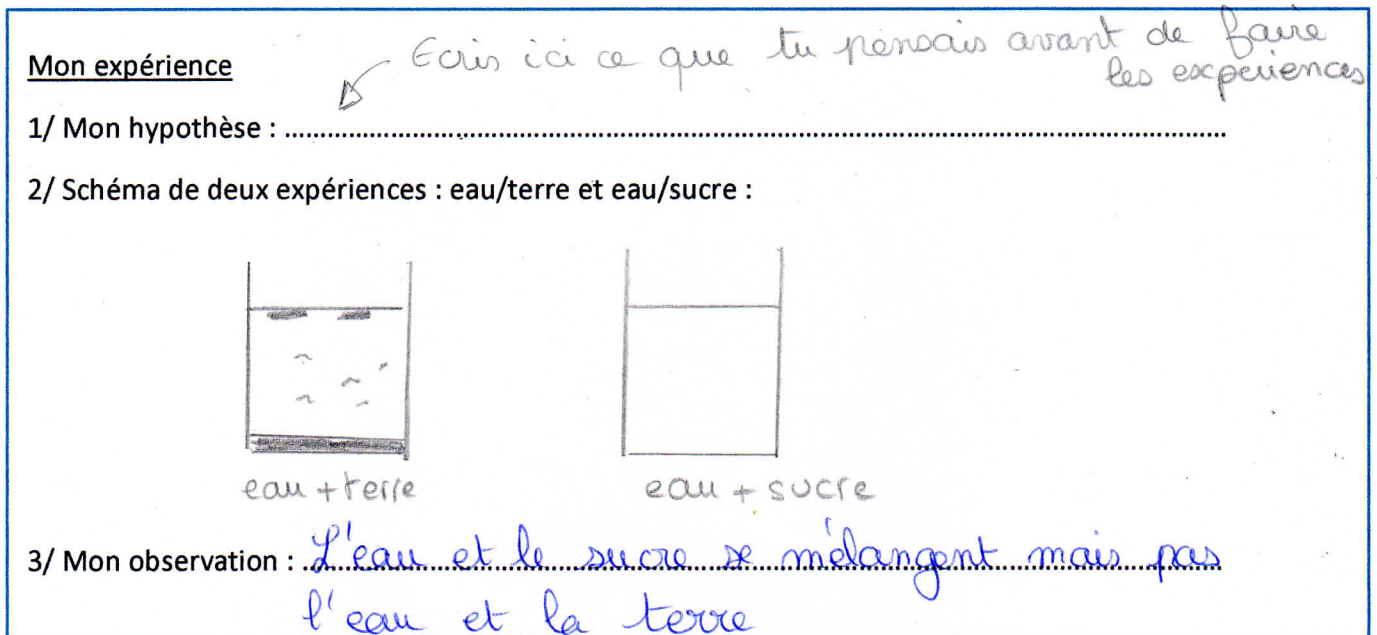 Mon expérience
Ecris ici ce que tu pensais avant de faire
les expériences
1/ Mon hypothèse : ..............................
2/ Schéma de deux expériences : eau/terre et eau/sucre :
eau + terre
eau + sucre
3/ Mon observation : L'eau et le sucre se mélangent mais pas
l'eau et la terre